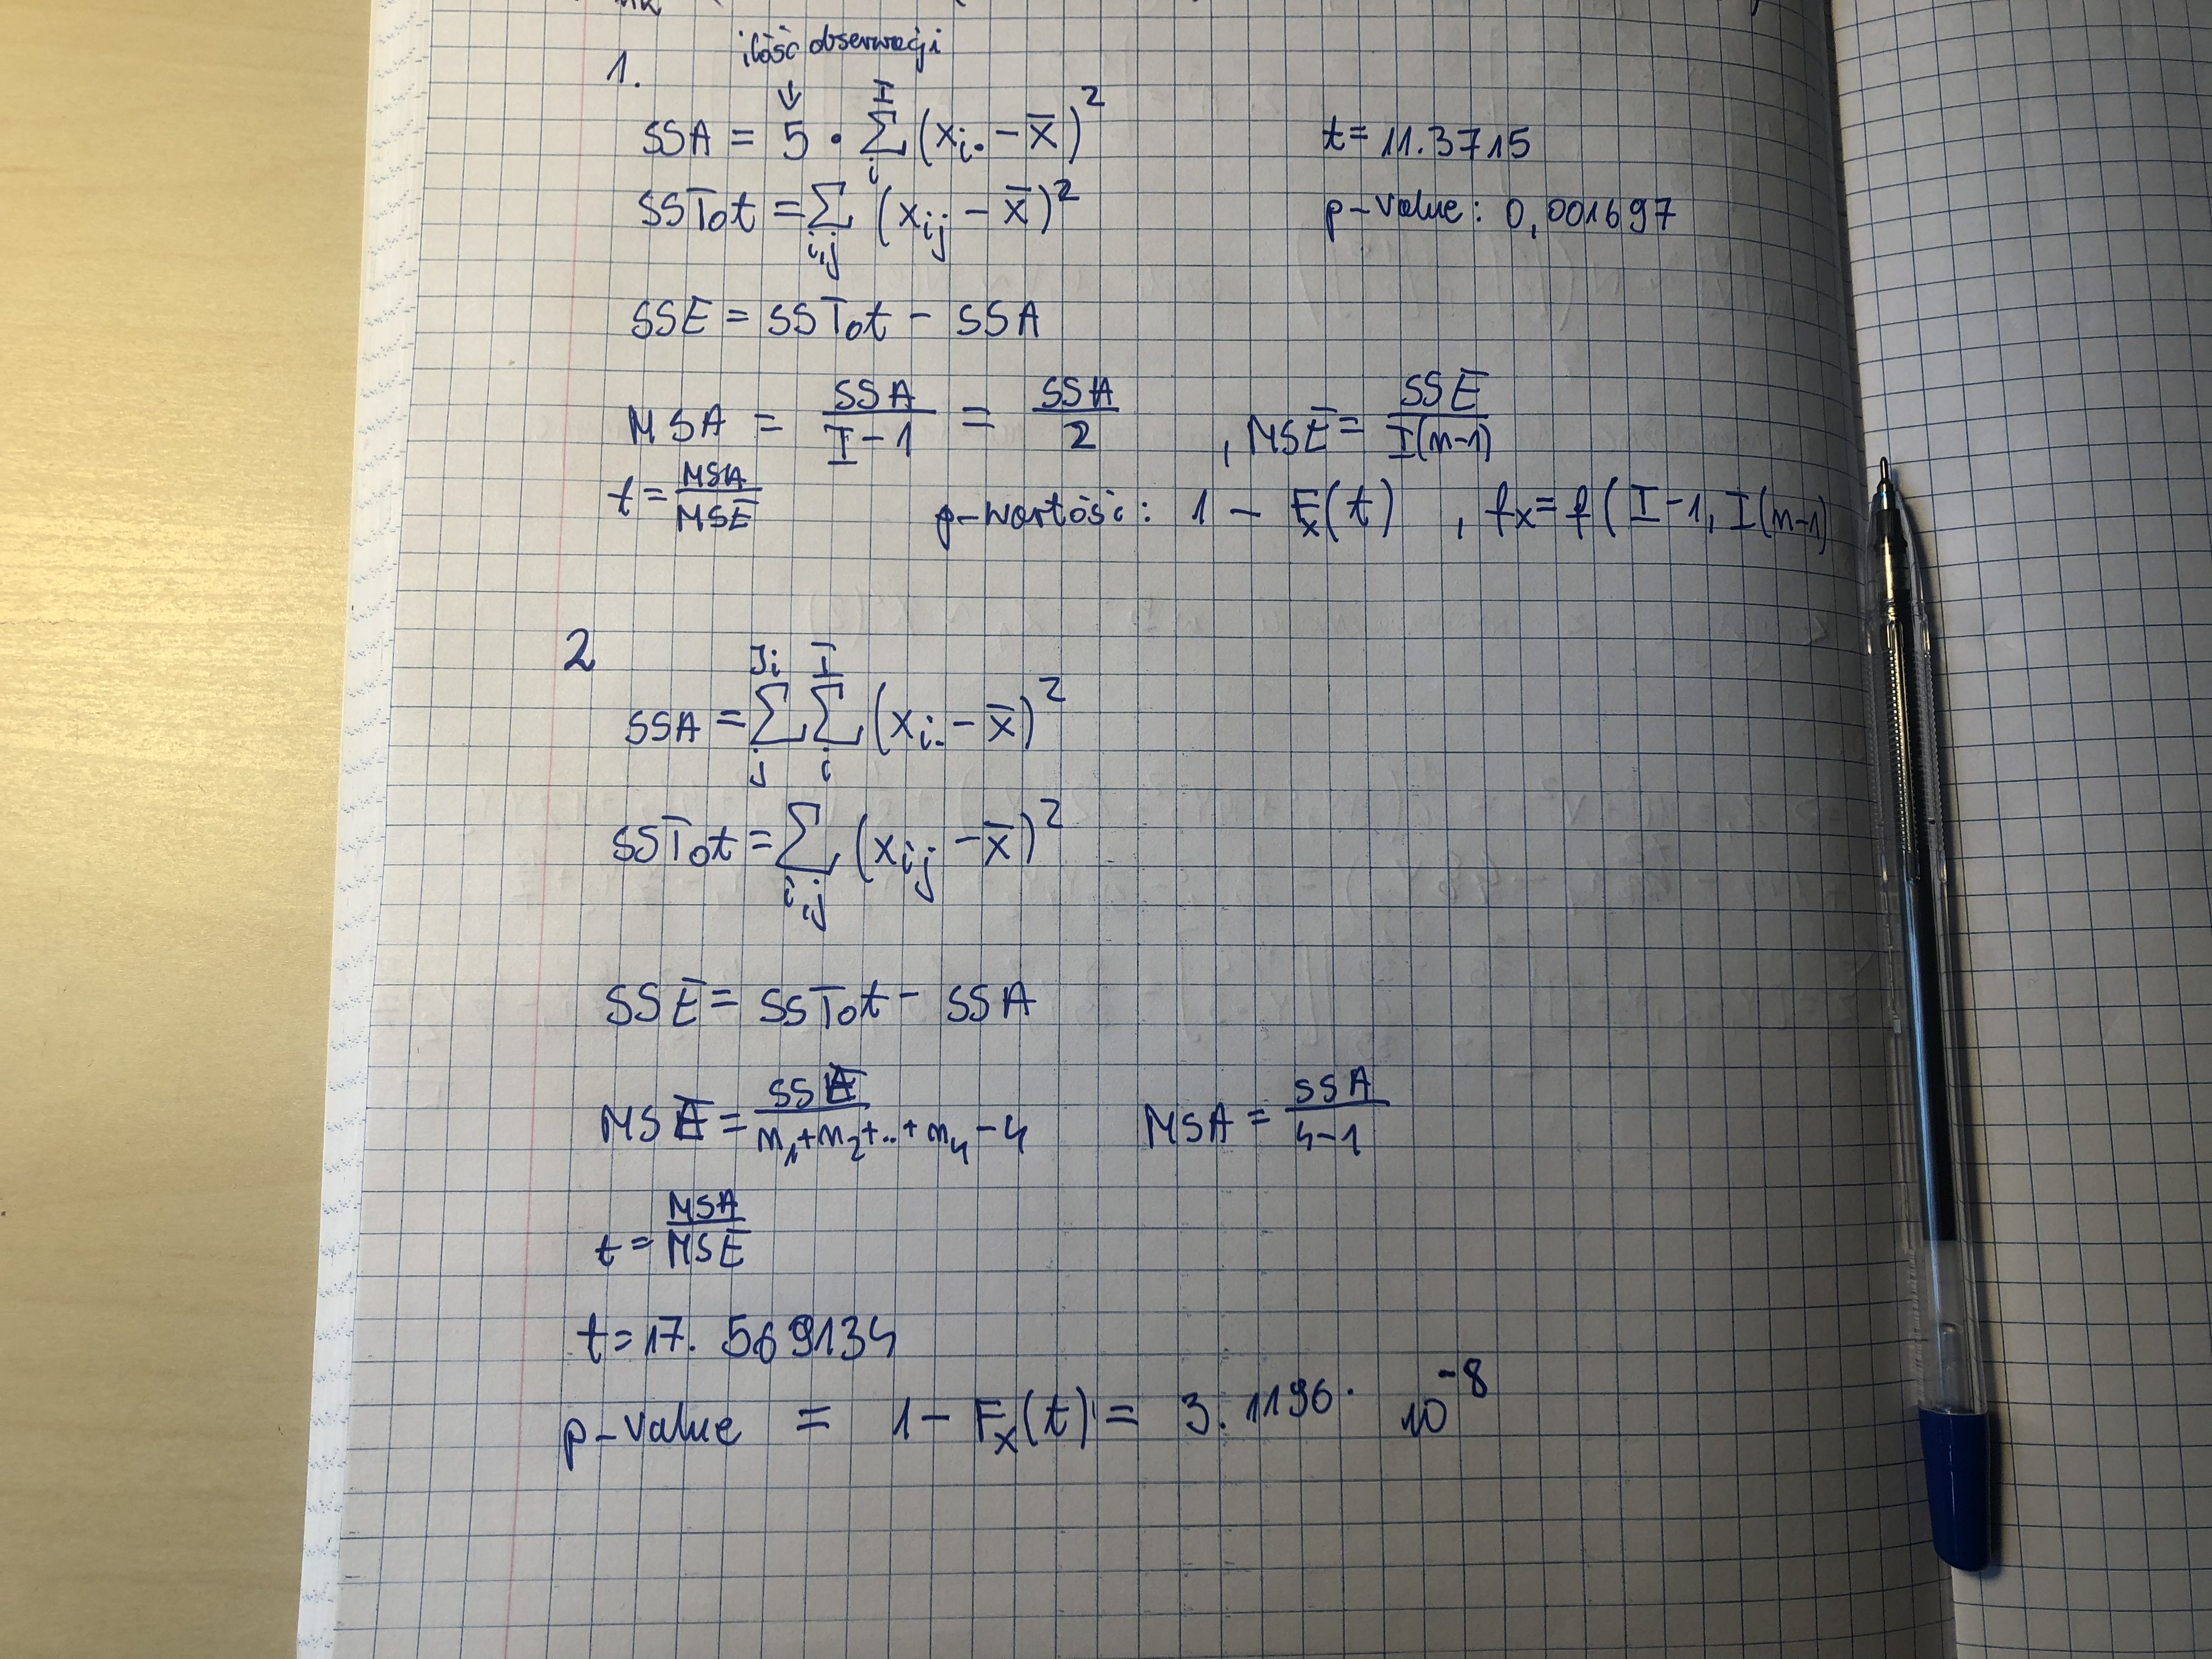 ilość obserwacji
1.
↓
SSA = 5 · Σ_i^I (x_i. - x̄)^2
t = 11.3715
SSTot = Σ_i,j (x_ij - x̄)^2
p-value: 0,001697
SSE = SSTot - SSA
MSA = SSA/(I-1) = SSA/2 , MSE = SSE/(I(n-1))
t = MSA/MSE p-wartość: 1 - F_x(t) , f_x = f(I-1, I(n-1)
2
SSA = Σ_j^Ji Σ_i^I (x_i. - x̄)^2
SSTot = Σ_i,j (x_ij - x̄)^2
SSE = SSTot - SSA
MSE = SSE/(n_1+n_2+..+n_4-4) MSA = SSA/(4-1)
t = MSA/MSE
t = 17.569134
p-value = 1 - F_x(t) = 3.1196 · 10^-8